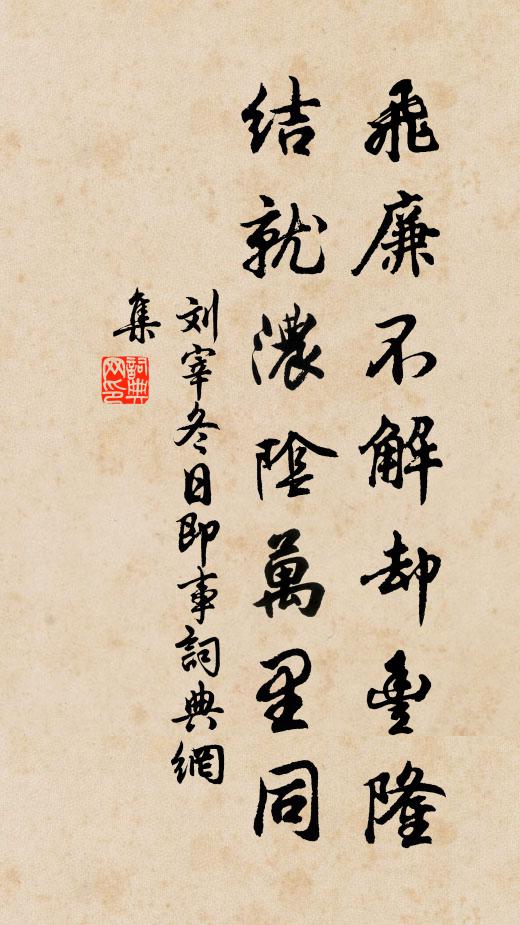 飛廉不解却豐隆
結就濃陰萬里同
刘宰冬日即事詞典網
集
詞典网印